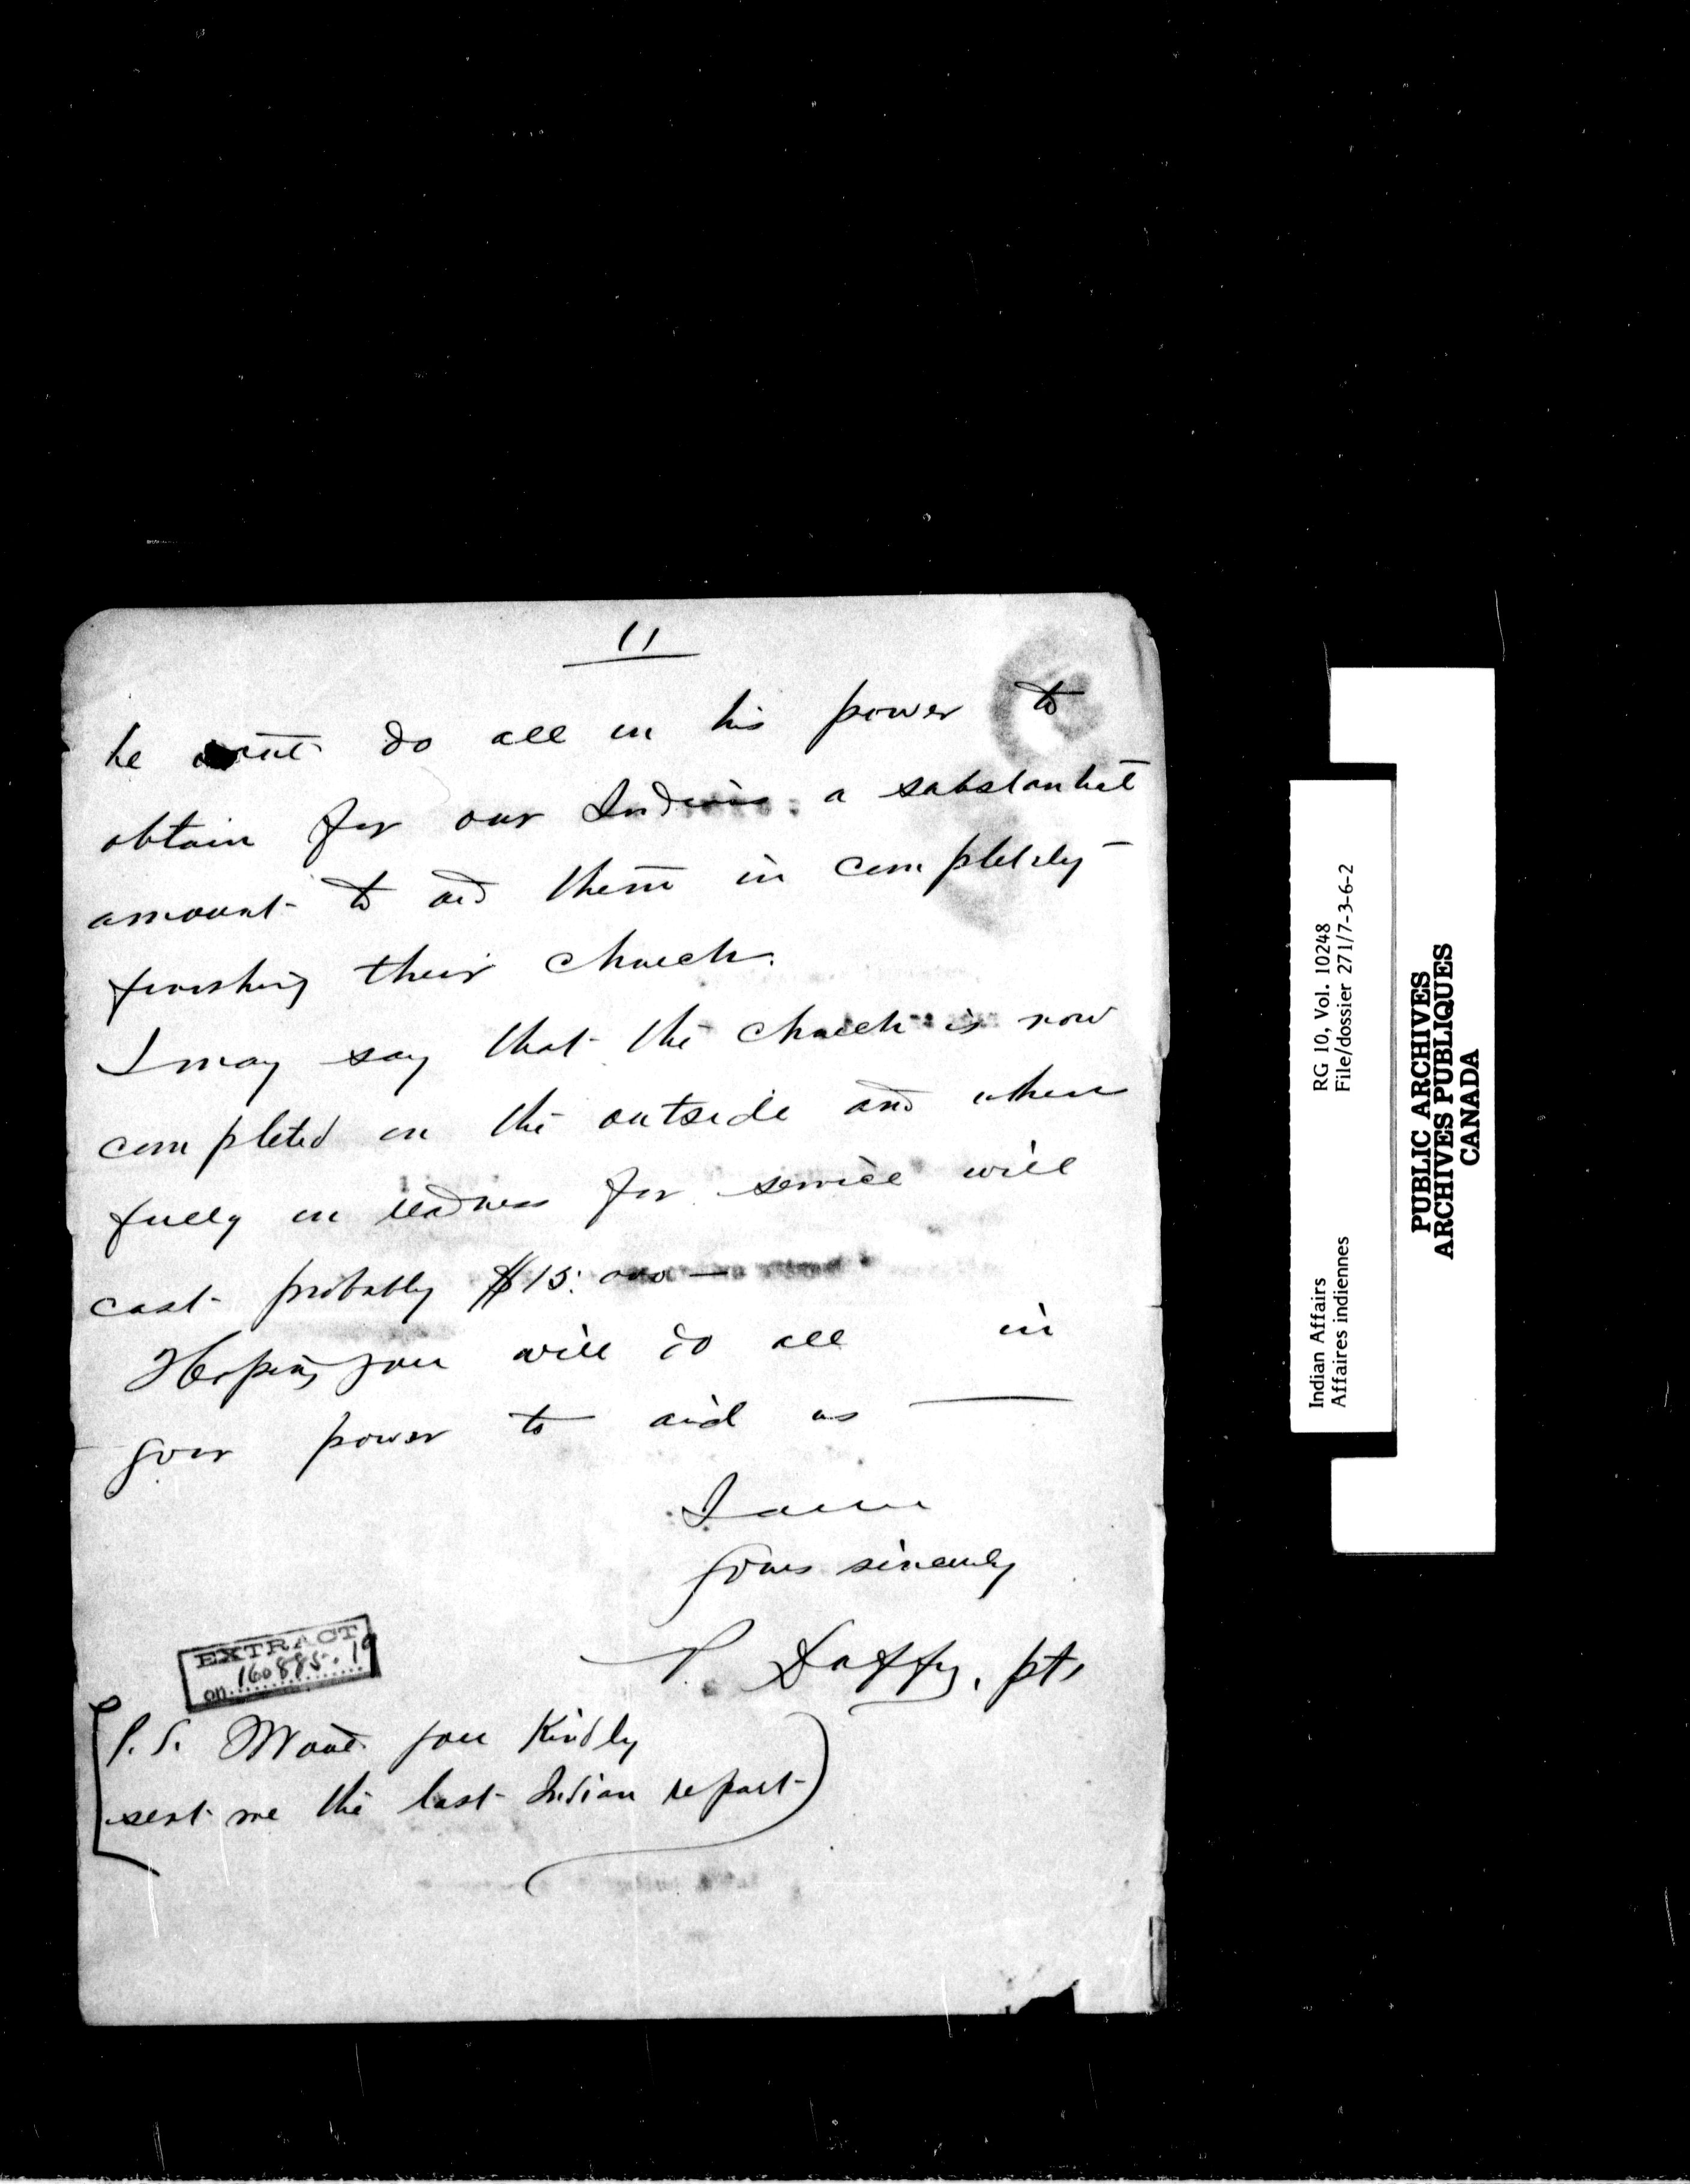 11
he would do all in his power to
obtain for our Indians a substantial
amount to aid them in completely
finishing their church.
I may say that the church is now
completed on the outside and when
fully in readness for service will
cost probably $15.000 —
Hoping you will do all in
your power to aid us —
I am
Yours sincerely
P. Daffy, pts
EXTRACT
on 160885.19
P.S. Would you Kindly
sent me the last Indian report
Indian Affairs RG 10, Vol. 10248
Affaires indiennes File/dossier 271/7-3-6-2
PUBLIC ARCHIVES
ARCHIVES PUBLIQUES
CANADA